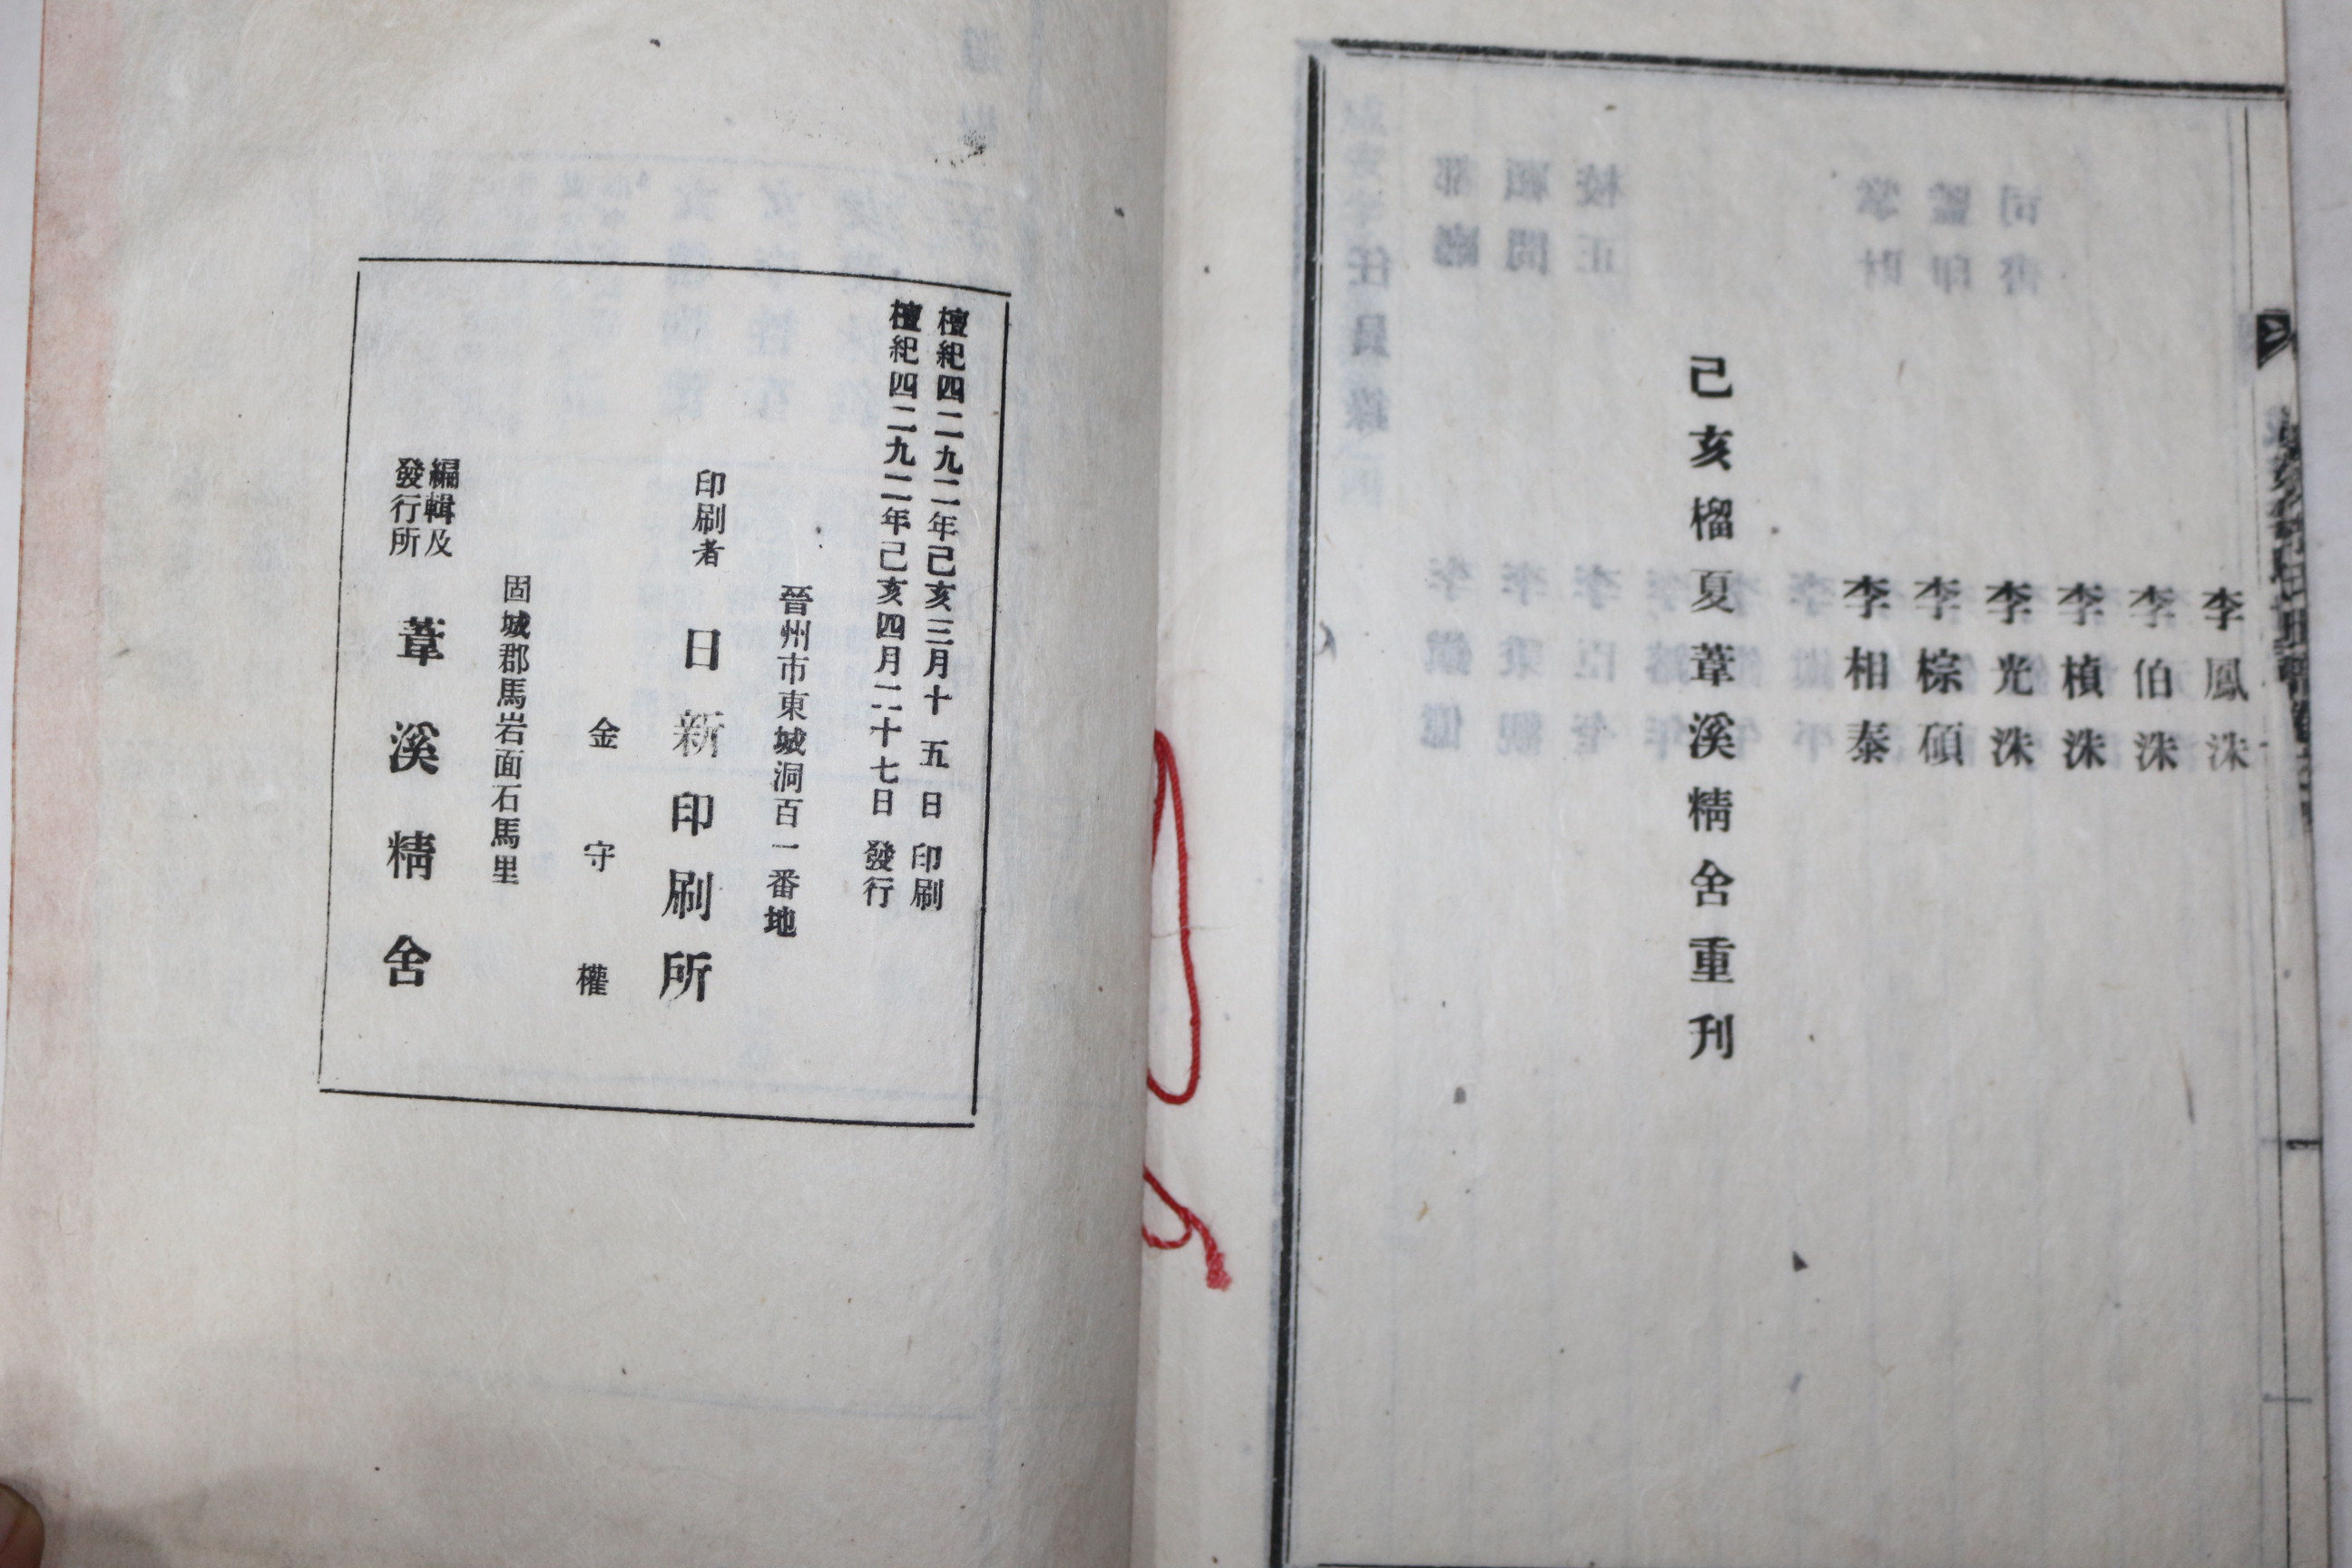 李鳳洙
李伯洙
李楨洙
李光洙
李棕碩
李相泰
己亥榴夏葦溪精舍重刊
檀紀四二九二年己亥三月十五日印刷
檀紀四二九二年己亥四月二十七日發行
晉州市東城洞百一番地
印刷者 日新印刷所
金守權
固城郡馬岩面石馬里
編輯及
發行所 葦溪精舍